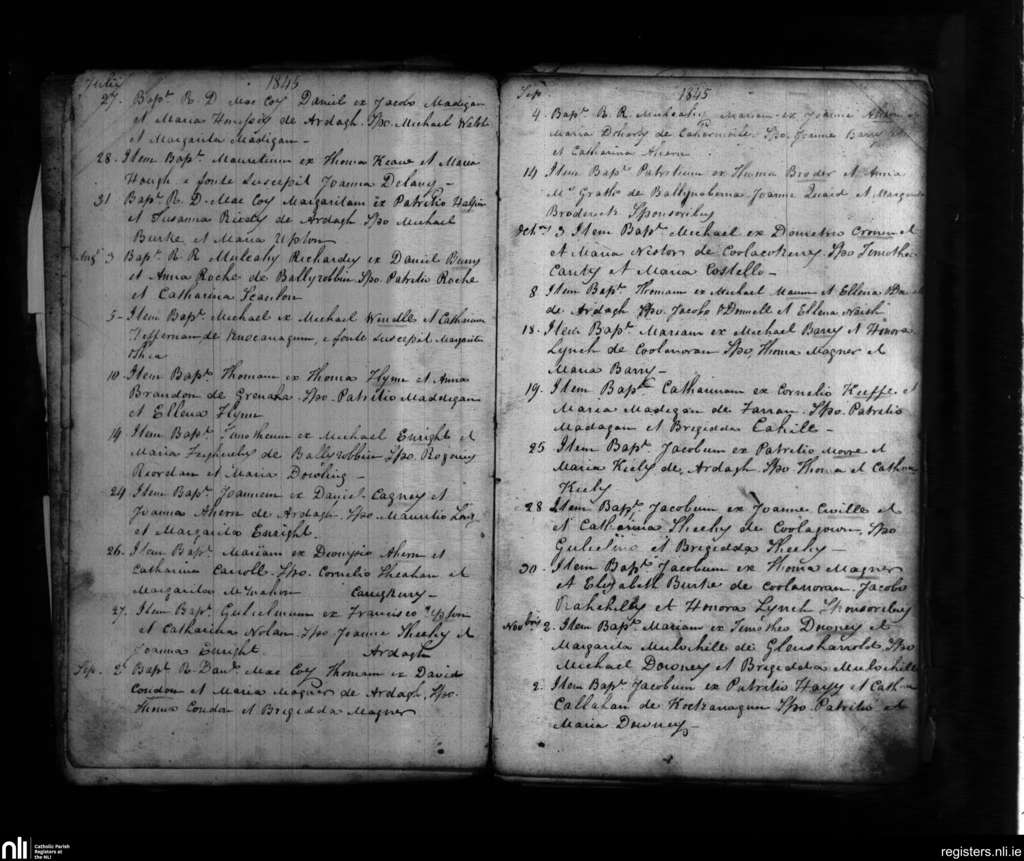 Julii 1845
27. Bapt. R. D Mac Coy Daniel ex Jacobo Madigan
et Maria de Ardagh. Spo. Michael Walsh
et Margarita Madigan
28. Item Bapt. Mauritium ex Thoma Keane et Maria
Hough e fonte suscepit Joanna Delany
31 Bapt. R. D. Mac Coy Margaritam ex Patritio Halpin
et Susanna de Ardagh Spo Michael
Burke et Maria Upton
Augt 3 Bapt. R R Mulcahy Richardus ex Daniel Barry
et Anna Roche de Ballyrobbin Spo. Patritio Roche
et Catharina Scanlon
5 - Item Bapt. Michael ex Michael Windle et Catharina
Heffernan de Knocanagun, e fonte suscepit Margarita
Shea
10. Item Bapt. Thomam ex Thoma Flynn et Anna
Brandon de Spo. Patritio Maddigan
et Ellena Flynn
14. Item Bapt. Timotheum ex Michael Enright et
Maria de Ballyrobbin Spo. Rogerio
Riordan et Maria Dowling -
24 Item Bapt. Joannem ex Daniel Cagney et
Joanna Ahern de Ardagh. Spo Mauritio Long
et Margarita Enright.
26. Item Bapt. Mariam ex Dionysio Ahern et
Catharina Carroll. Spo. Cornelio Sheahan et
Margarita McMahon
27. Item Bapt. Gulielmum ex Francisco Upton
et Catharina Nolan. Spo. Joanne Sheehy et
Joanna Enright. Ardagh
Sep. 2 Bapt R. Dan. Mac Coy Thomam ex David
Condon et Maria Magner de Ardagh, Spo.
Thoma Condon et Brigedda Magner
Sep. 1845
4. Bapt. R. R. Mulcahy Mariam ex Joanne Ahern et
Maria Doherty de Cahermoile. Spo. Joanne Barry
et Catharina Ahern
14 Item Bapt. Patritium ex Thoma Broder et Anna
Mc Grath de Joanne Quaid et Margarita
Broderick Sponsoribus
Oct. 3 Item Bapt. Michael ex Demetrio Cronin et
et Maria Nestor de Spo Timotheo
et Maria Costello -
8 Item Bapt. Thomam ex Michael et Ellena
de Ardagh Spo. Jacobo O'Donnell et Ellena
18. Item Bapt. Mariam ex Michael Barry et Honora
Lynch de Coolanoran Spo. Thoma Magner et
Maria Barry -
19. Item Bapt. Catharinam ex Cornelio Keeffe et
Maria Madigan de Farran. Spo. Patritio
Madagan et Brigedda Cahill -
25 Item Bapt. Jacobum ex Patritio Moore et
Maria Kiely de Ardagh Spo Thoma et Catharina
Kiely
28 Item Bapt. Jacobum ex Joanne Civille et
et Catharina Sheehy de Coolagowen, Spo
Gulielmo et Brigedda Sheehy -
30. Item Bapt. Jacobum ex Thoma Magner
et Elizabeth Burke de Coolanoran. Jacobo
et Honora Lynch Sponsoribus
Novbris 2. Item Bapt. Mariam ex Timotheo Downey et
Margarita Mulvihill de Glensharrold, Spo
Michael Downey et Brigedda Mulvihill
2. Item Bapt. Jacobum ex Patritio Hayes et Cath
Callahan de Spo. Patritio et
Maria Downey
nli
Catholic Parish
Registers at
the NLI
registers.nli.ie